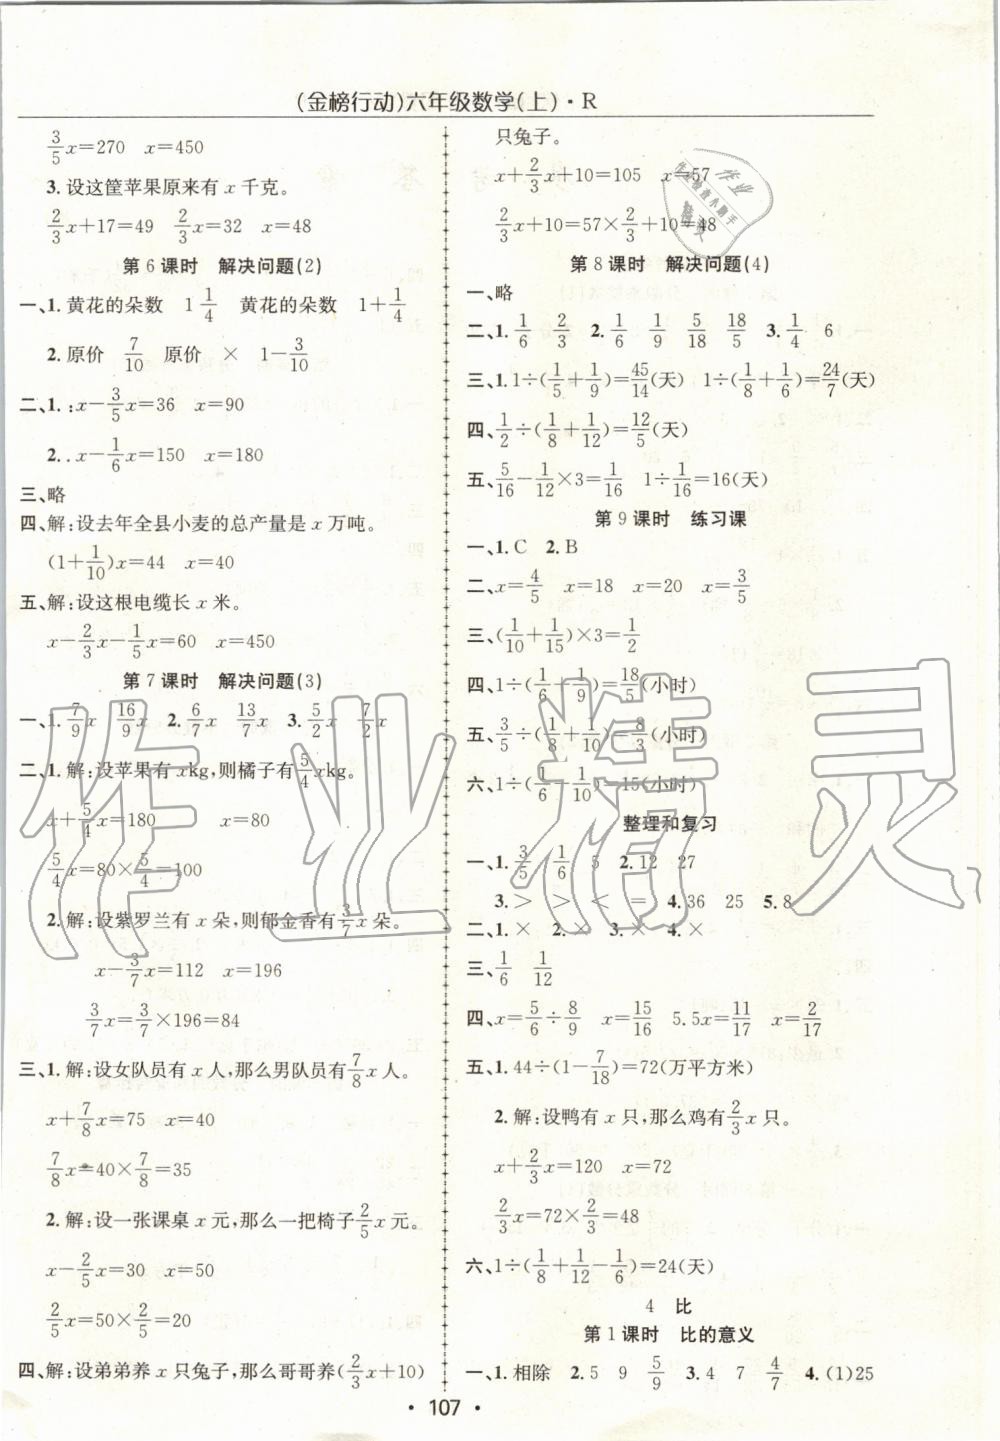 (金榜行动)六年级数学(上)·R
3/5x=270 x=450
3.设这筐苹果原来有 x 千克。
2/3x+17=49 2/3x=32 x=48
第 6 课时 解决问题(2)
一、1.黄花的朵数 1 1/4 黄花的朵数 1+1/4
2.原价 7/10 原价 × 1-3/10
二、1.:x-3/5x=36 x=90
2..x-1/6x=150 x=180
三、略
四、解:设去年全县小麦的总产量是 x 万吨。
(1+1/10)x=44 x=40
五、解:设这根电缆长 x 米。
x-2/3x-1/5x=60 x=450
第 7 课时 解决问题(3)
一、1.7/9x 16/9x 2.6/7x 13/7x 3.5/2x 7/2x
二、1.解:设苹果有 xkg,则橘子有5/4xkg。
x+5/4x=180 x=80
5/4x=80×5/4=100
2.解:设紫罗兰有 x 朵,则郁金香有3/7x朵。
x-3/7x=112 x=196
3/7x=3/7×196=84
三、1.解:设女队员有 x 人,那么男队员有7/8x人。
x+7/8x=75 x=40
7/8x=40×7/8=35
2.解:设一张课桌 x 元,那么一把椅子2/5x元。
x-2/5x=30 x=50
2/5x=50×2/5=20
四、解:设弟弟养 x 只兔子,那么哥哥养(2/3x+10)
只兔子。
x+2/3x+10=105 x=57
2/3x+10=57×2/3+10=48
第 8 课时 解决问题(4)
一、略
二、1.1/6 2/3 2.1/6 1/9 5/18 18/5 3.1/4 6
三、1.1÷(1/5+1/9)=45/14(天) 1÷(1/8+1/6)=24/7(天)
四、1/2÷(1/8+1/12)=12/5(天)
五、5/16-1/12×3=1/16 1÷1/16=16(天)
第 9 课时 练习课
一、1.C 2.B
二、x=4/5 x=18 x=20 x=3/5
三、(1/10+1/15)×3=1/2
四、1÷(1/6+1/9)=18/5(小时)
五、3/5÷(1/8+1/10)=8/3(小时)
六、1÷(1/6-1/10)=15(小时)
整理和复习
一、1.3/5 1/6 5 2.12 27
3.> > < = 4.36 25 5.8
二、1.× 2.× 3.× 4.×
三、1/6 1/12
四、x=5/6÷8/9 x=15/16 5.5x=11/17 x=2/17
五、1.44÷(1-7/18)=72(万平方米)
2.解:设鸭有 x 只,那么鸡有2/3x只。
x+2/3x=120 x=72
2/3x=72×2/3=48
六、1÷(1/8+1/12-1/6)=24(天)
4 比
第 1 课时 比的意义
一、1.相除 2.5 9 5/9 3.4 7 4/7 4.(1)25
· 107 ·
作业精灵